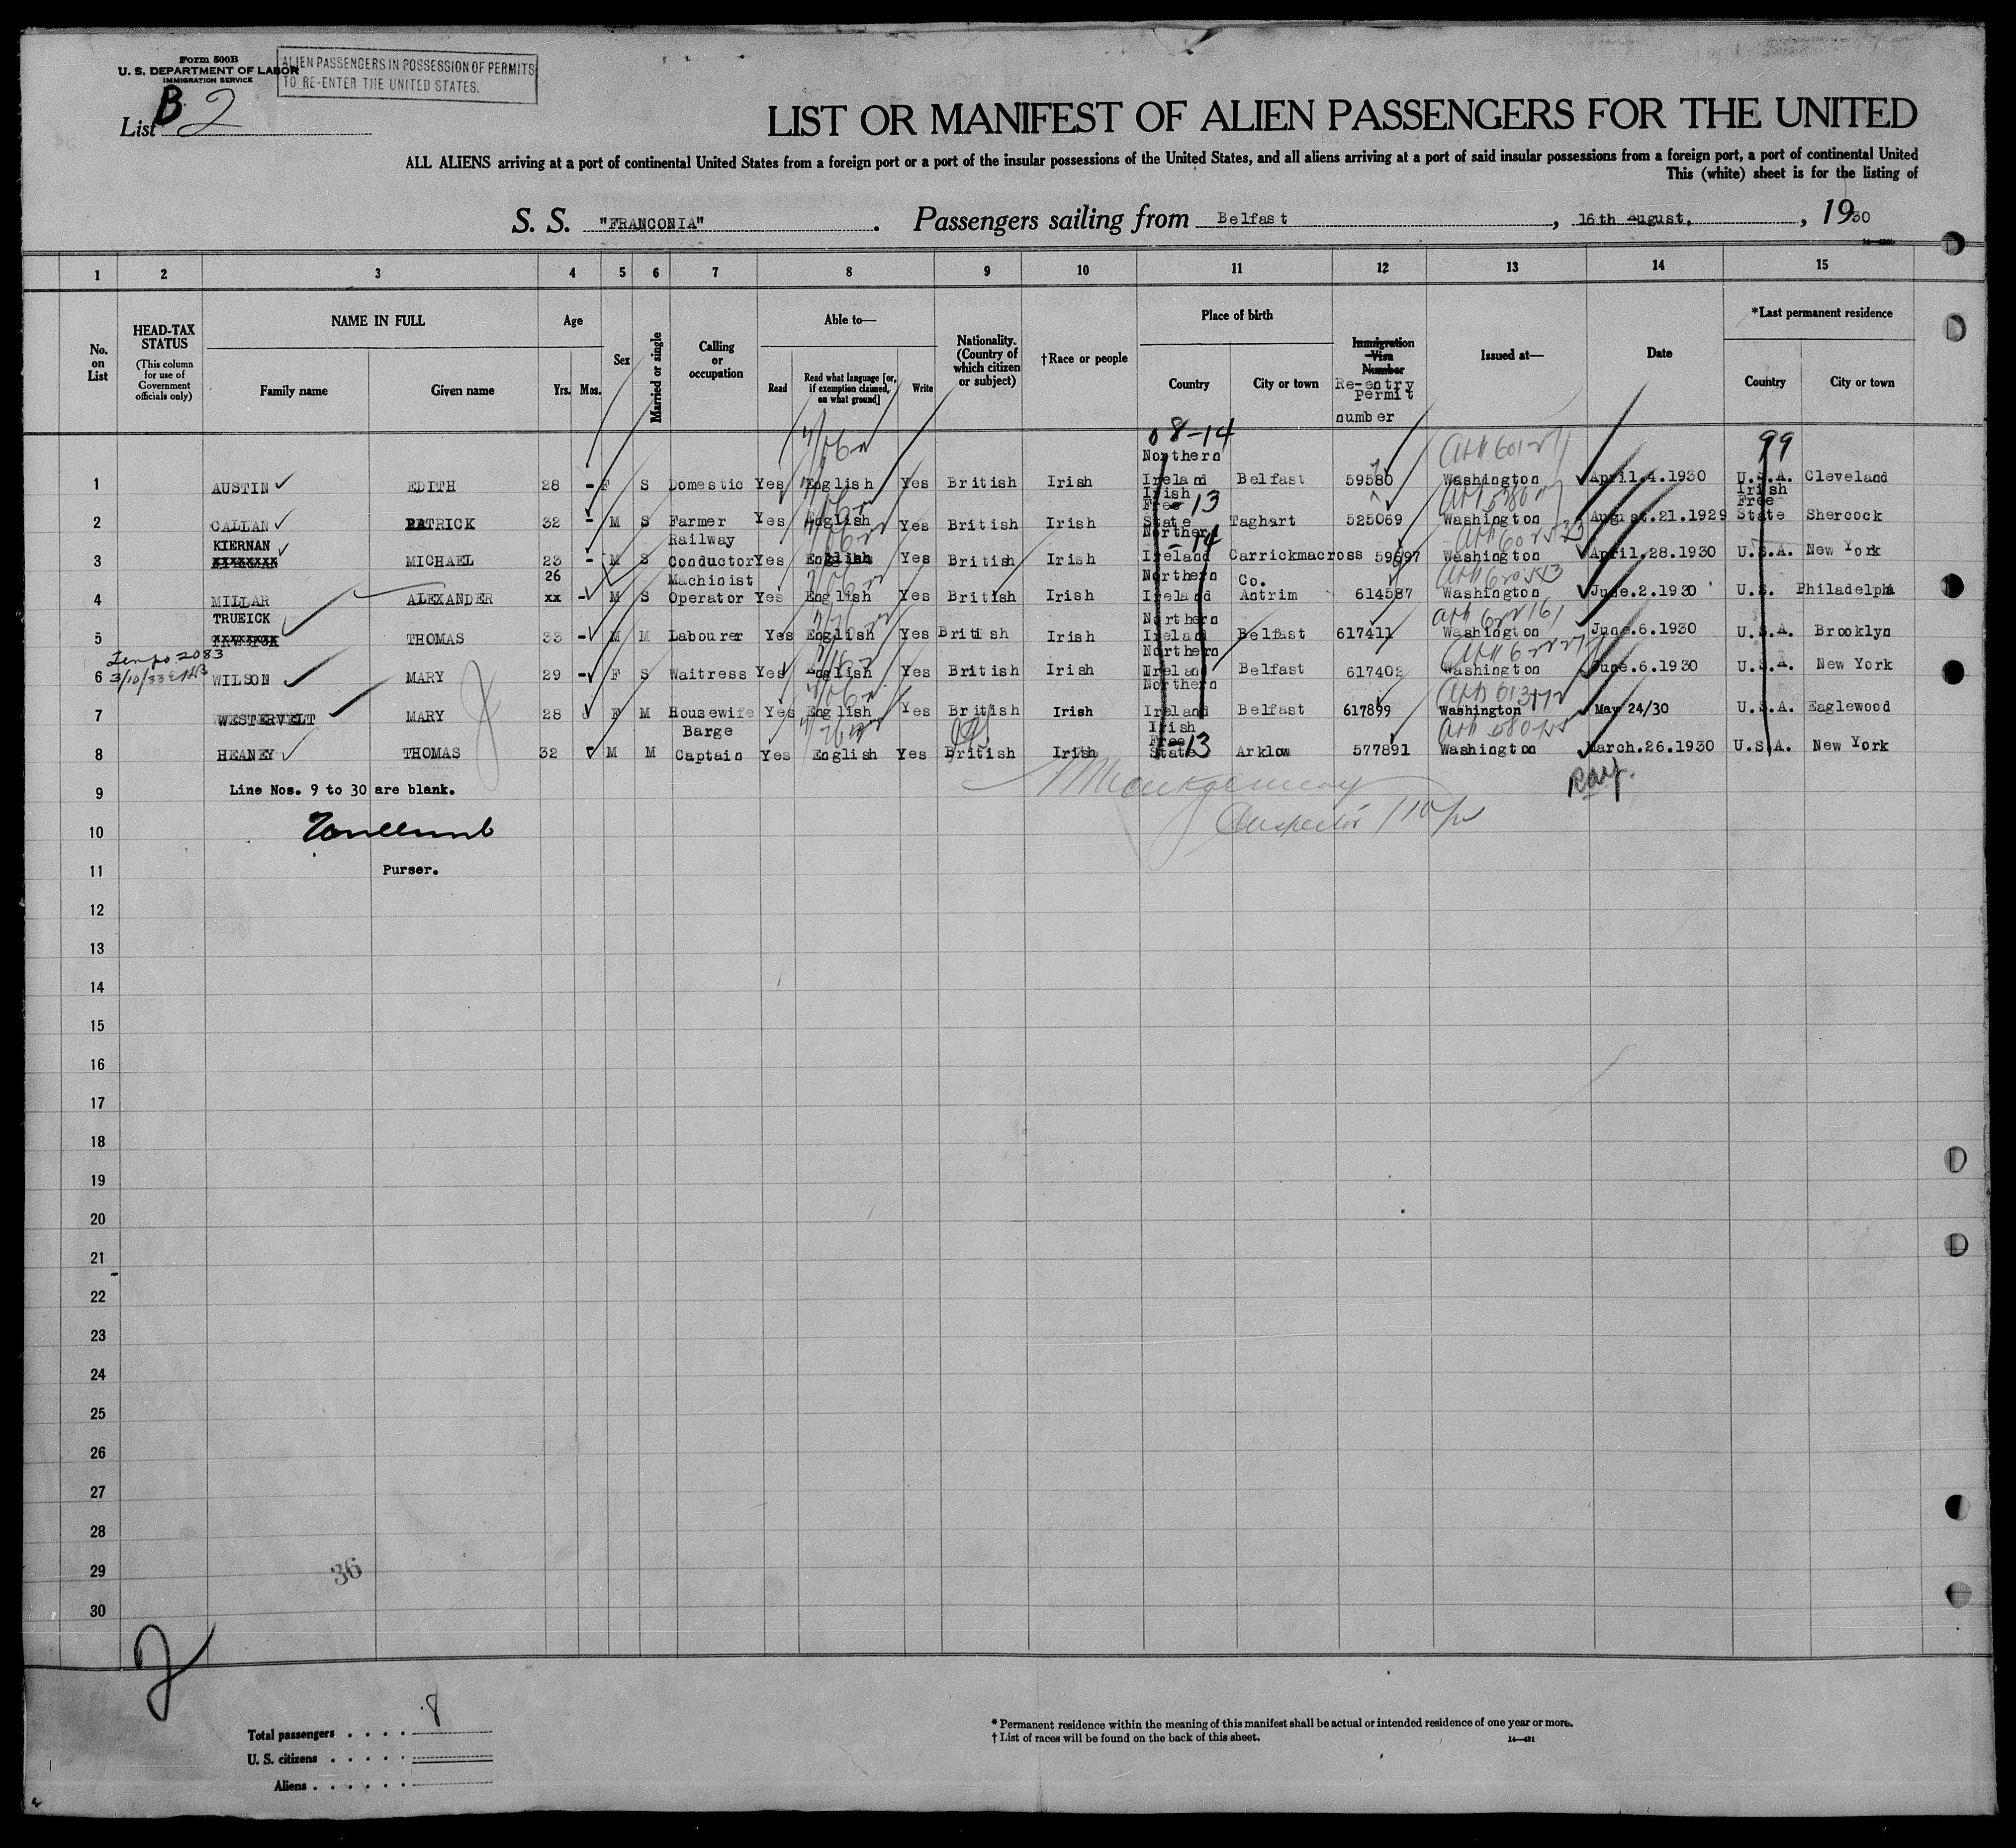 Form 500B
U. S. DEPARTMENT OF LABOR
IMMIGRATION SERVICE
ALIEN PASSENGERS IN POSSESSION OF PERMITS
TO RE-ENTER THE UNITED STATES.
List B 2
LIST OR MANIFEST OF ALIEN PASSENGERS FOR THE UNITED
ALL ALIENS arriving at a port of continental United States from a foreign port or a port of the insular possessions of the United States, and all aliens arriving at a port of said insular possessions from a foreign port, a port of continental United
This (white) sheet is for the listing of
S. S. "FRANCONIA". Passengers sailing from Belfast, 16th August., 1930
1 2 3 4 5 6 7 8 9 10 11 12 13 14 15
No. on List
HEAD-TAX STATUS
(This column for use of Government officials only)
NAME IN FULL
Family name Given name
Age
Yrs. Mos.
Sex
Married or single
Calling or occupation
Able to—
Read Read what language [or, if exemption claimed, on what ground] Write
Nationality. (Country of which citizen or subject)
†Race or people
Place of birth
Country City or town
Immigration Visa Number
Re-entry permit number
Issued at—
Date
*Last permanent residence
Country City or town
08-14 99
1 AUSTIN EDITH 28 - F S Domestic Yes English Yes British Irish Northern Ireland Belfast 59580 Washington April.4.1930 U.S.A. Cleveland
2 CALLAN PATRICK 32 - M S Farmer Yes English Yes British Irish Irish Free State 13 Taghart 525069 Washington August.21.1929 Irish Free State Shercock
3 KIERNAN MICHAEL 23 - M S Railway Conductor Yes English Yes British Irish Northern Ireland 14 Carrickmacross 59697 Washington April.28.1930 U.S.A. New York
4 MILLAR ALEXANDER 26 xx - M S Machinist Operator Yes English Yes British Irish Northern Ireland Co. Antrim 614587 Washington June.2.1930 U.S. Philadelphi
5 TRUEICK THOMAS 33 - M M Labourer Yes English Yes British Irish Northern Ireland Belfast 617411 Washington June.6.1930 U.S.A. Brooklyn
3/10/33
6 WILSON MARY 29 - F S Waitress Yes English Yes British Irish Northern Ireland Belfast 617402 Washington June.6.1930 U.S.A. New York
7 WESTERVELT MARY 28 F M Housewife Yes English Yes British Irish Northern Ireland Belfast 617899 Washington May 24/30 U.S.A. Eaglewood
8 HEANEY THOMAS 32 M M Barge Captain Yes English Yes British Irish Irish Free State 13 Arklow 577891 Washington March.26.1930 U.S.A. New York
9 Line Nos. 9 to 30 are blank.
10 Inspector
11 Purser.
12
13
14
15
16
17
18
19
20
21
22
23
24
25
26
27
28
29 36
30
2
Total passengers . . . . 8
U. S. citizens . . . . .
Aliens . . . . . .
* Permanent residence within the meaning of this manifest shall be actual or intended residence of one year or more.
† List of races will be found on the back of this sheet.
14—421